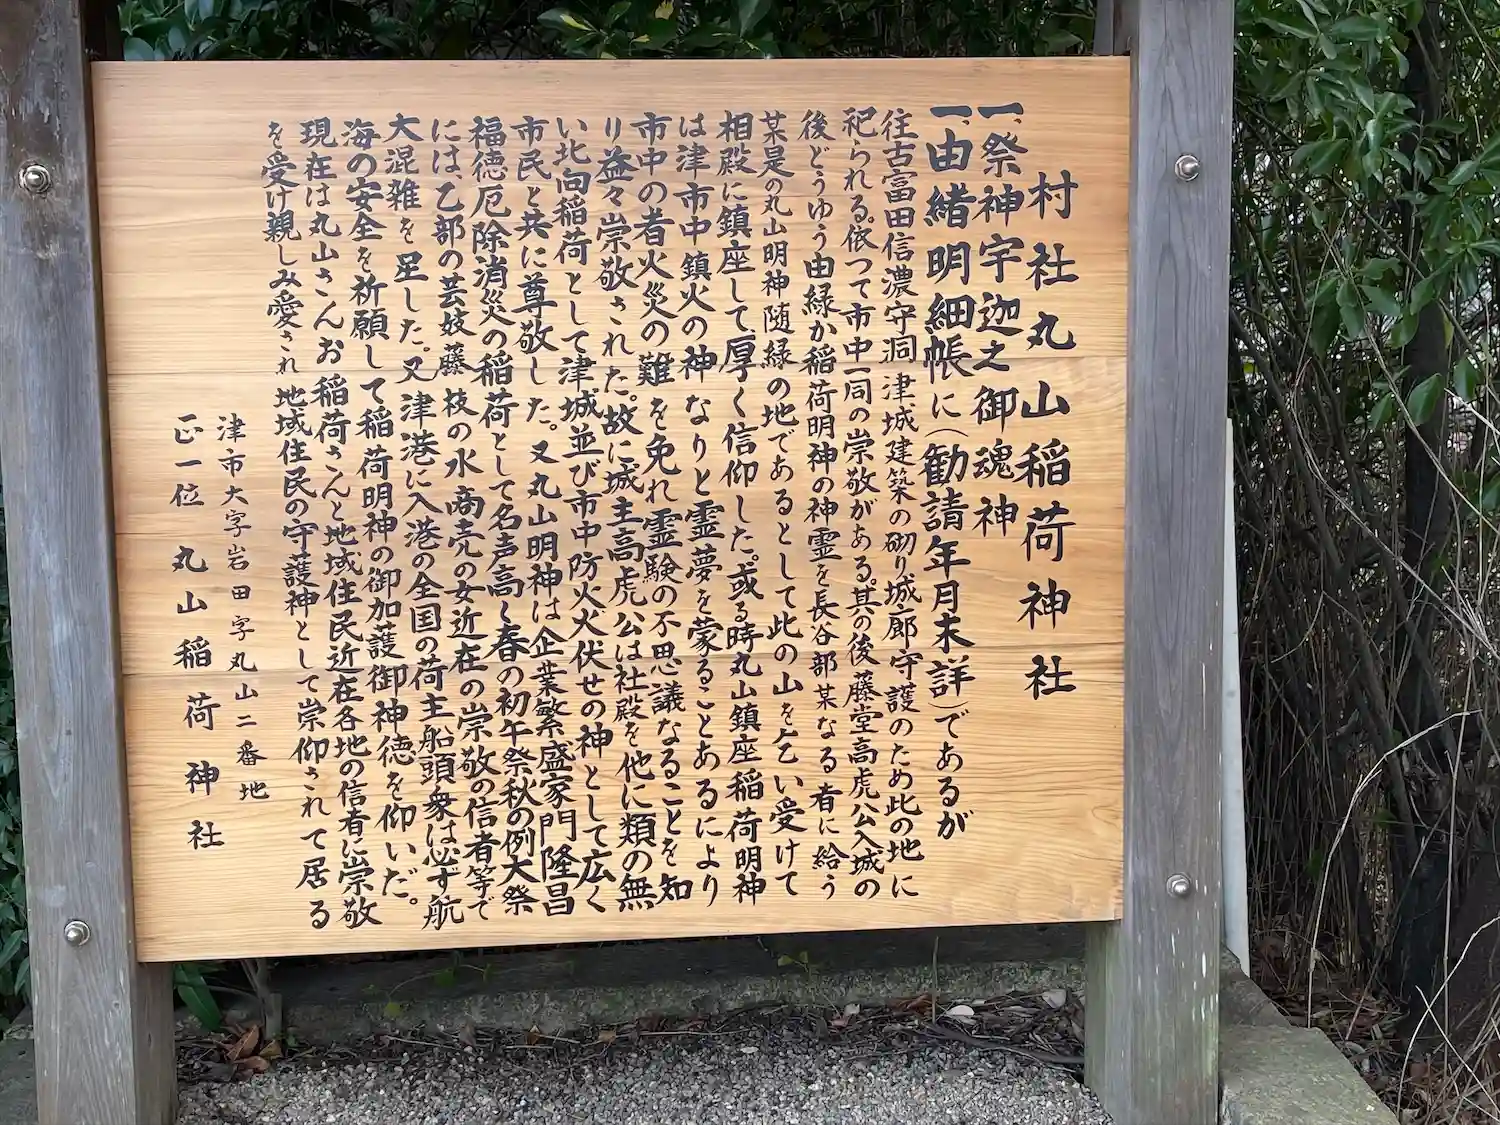 村社丸山稲荷神社
一、祭神宇迦之御魂神
一、由緒明細帳に(勧請年月未詳)であるが
往古富田信濃守洞津城建築の砌り城廊守護のため此の地に
祀られる。依つて市中一同の崇敬がある。其の後藤堂高虎公入城の
後どうゆう由縁か稲荷明神の神霊を長谷部某なる者に給う
某是の丸山明神随縁の地であるとして此の山を乞い受けて
相殿に鎮座して、厚く信仰した。或る時丸山鎮座稲荷明神
は津市中鎮火の神なりと霊夢を蒙ることあるにより
市中の者火災の難を免れ霊験の不思議なることを知
り益々崇敬された。故に城主高虎公は社殿を他に類の無
い北向稲荷として津城並び市中防火火伏せの神として広く
市民と共に尊敬した。又丸山明神は企業繁盛家門隆昌
福徳厄除消災の稲荷として名声高く春の初午祭秋の例大祭
には乙部の芸妓藤枝の水商売の女近在の崇敬の信者等で
大混雑を呈した。又津港に入港の全国の荷主船頭衆は必ず航
海の安全を祈願して稲荷明神の御加護御神徳を仰いだ。
現在は丸山さんお稲荷さんと地域住民近在各地の信者に崇敬
を受け親しみ愛され地域住民の守護神として崇仰されて居る
津市大字岩田字丸山二番地
正一位丸山稲荷神社